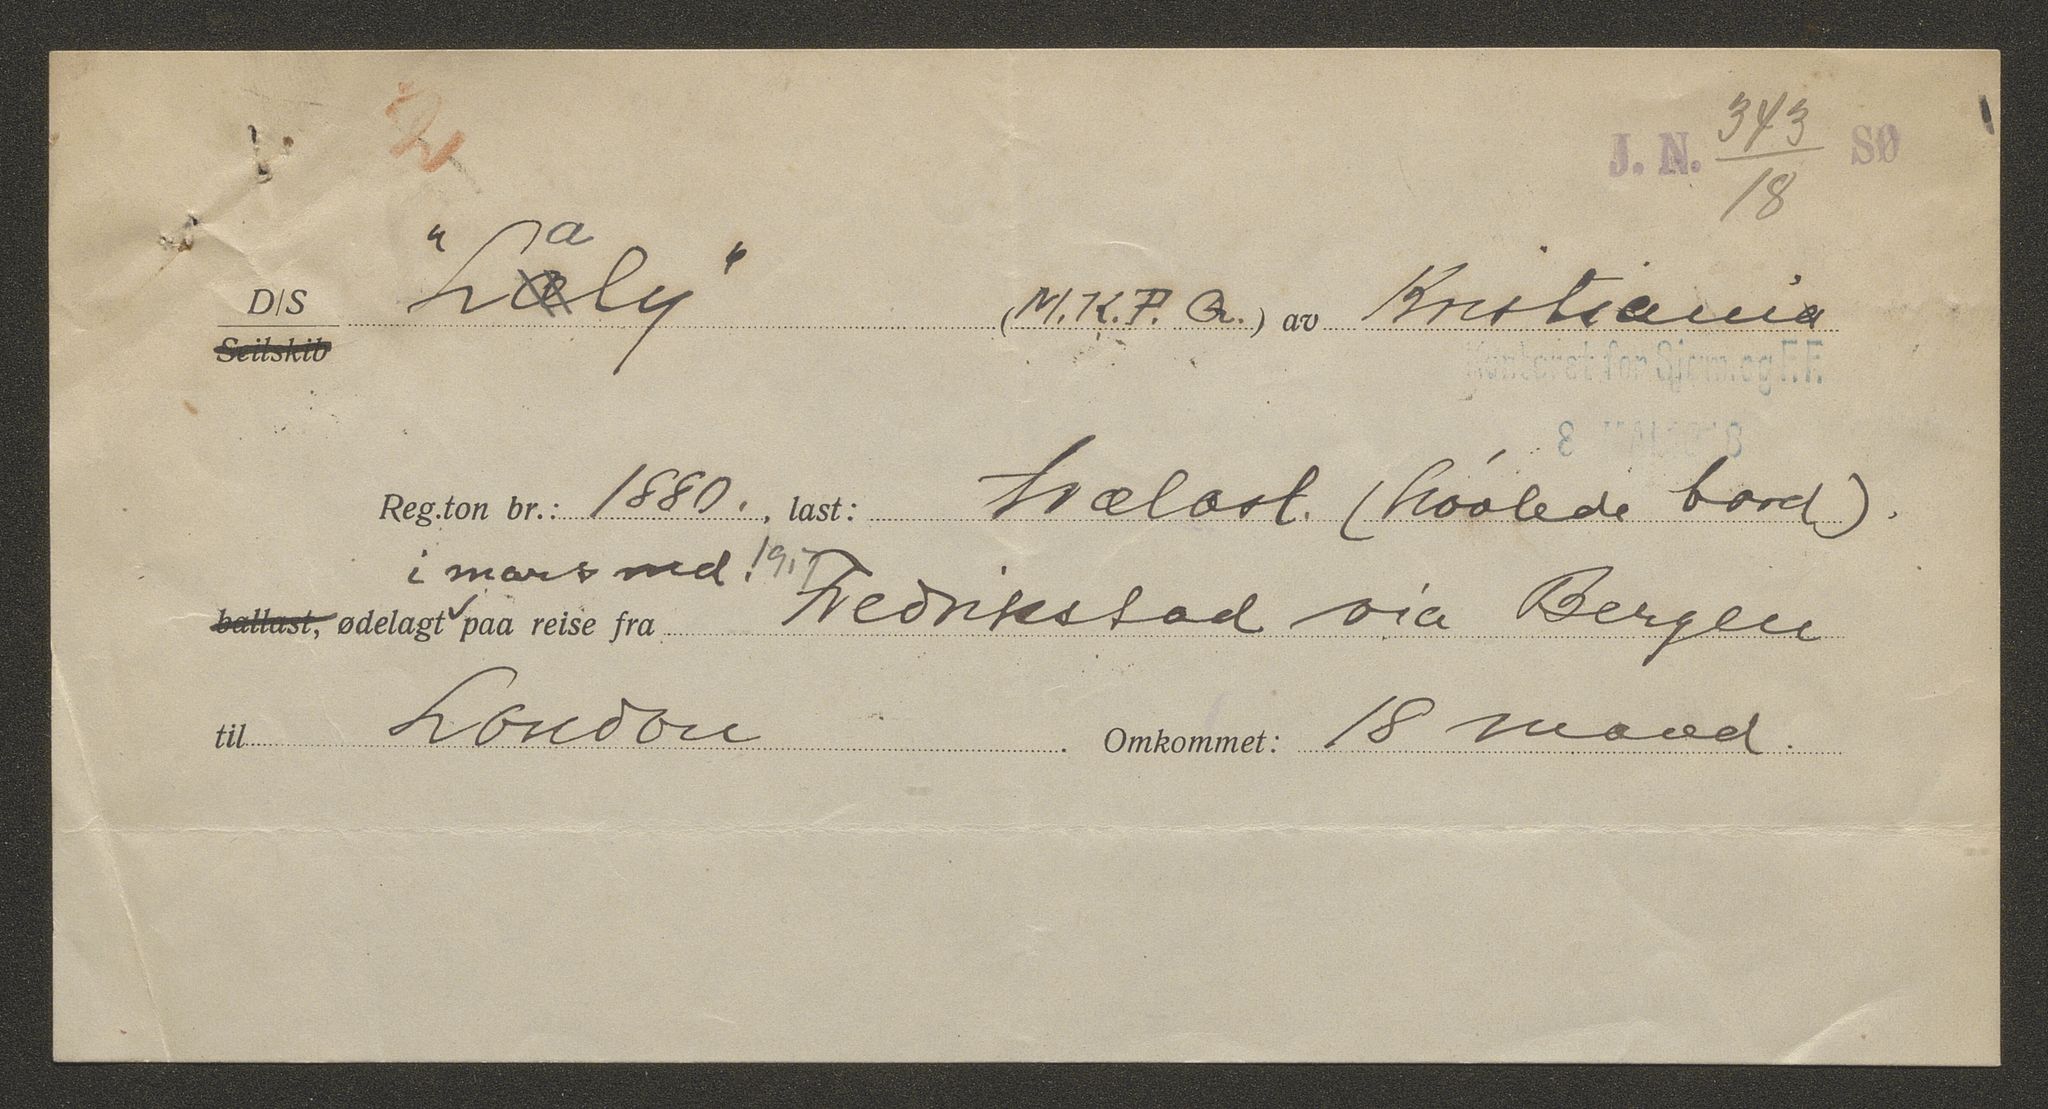 J. N. 343/18 SØ
D/S "Laly" (M.K.P.Q.) av Kristiania
Seilskib
Kontoret for Sjøm. og F. F.
8 MAI 1918
Reg.ton br.: 1880. , last: trælast. (høvlede bord).
i mars md. 1917
ballast, ødelagt paa reise fra Fredrikstad via Bergen
til London . Omkommet: 18 mand.